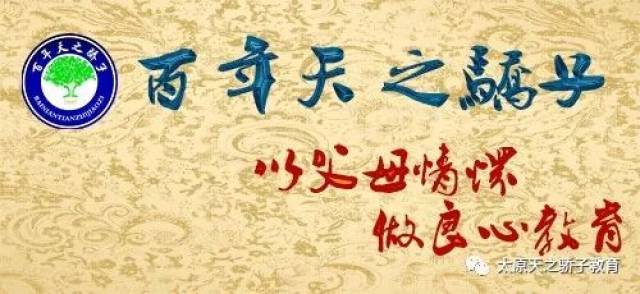 百年天之骄子
BAINIANTIANZHIJIAOZI
百年天之驕子
以父母情懷
做良心教育
太原天之骄子教育